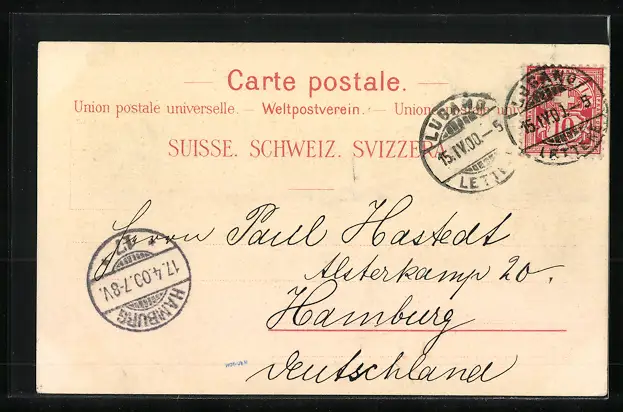 Carte postale.
Union postale universelle. – Weltpostverein. – Union postale uni
SUISSE. SCHWEIZ. SVIZZERA
LUGANO
15.IV.00.–5
LETT
LUGANO
15.IV.00.–5
LETT
10
Herrn Paul Hastedt
Alsterkamp 20.
Hamburg
Deutschland
17.4.00.7-8V.
HAMBURG